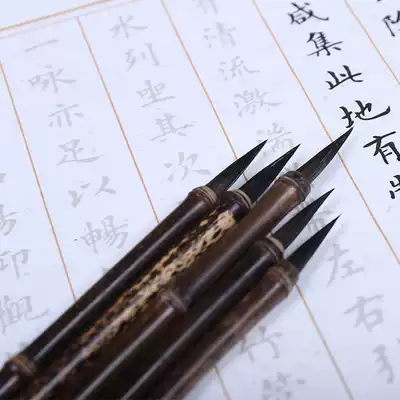 咸集此地有
有清流激湍左右引
水列坐其次竹管
一咏亦足以暢
仰觀